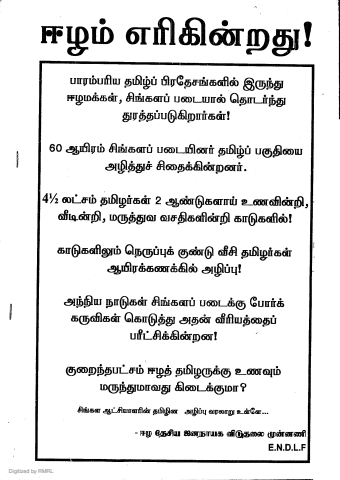 ஈழம் எரிகின்றது!
பாரம்பரிய தமிழ்ப் பிரதேசங்களில் இருந்து
ஈழமக்கள், சிங்களப் படையால் தொடர்ந்து
துரத்தப்படுகிறார்கள்!
60 ஆயிரம் சிங்களப் படையினர் தமிழ்ப் பகுதியை
அழித்துச் சிதைக்கின்றனர்.
4½ லட்சம் தமிழர்கள் 2 ஆண்டுகளாய் உணவின்றி,
வீடின்றி, மருத்துவ வசதிகளின்றி காடுகளில்!
காடுகளிலும் நெருப்புக் குண்டு வீசி தமிழர்கள்
ஆயிரக்கணக்கில் அழிப்பு!
அந்நிய நாடுகள் சிங்களப் படைக்கு போர்க்
கருவிகள் கொடுத்து அதன் வீரியத்தைப்
பரீட்சிக்கின்றன!
குறைந்தபட்சம் ஈழத் தமிழருக்கு உணவும்
மருந்துமாவது கிடைக்குமா?
சிங்கள ஆட்சியாளரின் தமிழின அழிப்பு வரலாறு உள்ளே...
- ஈழ தேசிய ஜனநாயக விடுதலை முன்னணி
E.N.D.L.F
Digitized by RMRL